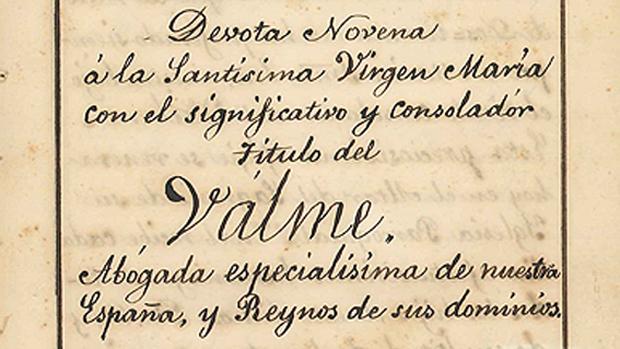 Devota Novena
á la Santísima Virgen María
con el significativo y consoladór
título del
Válme.
Abógada especialísima de nuestra
España, y Reynos de sus dominios.